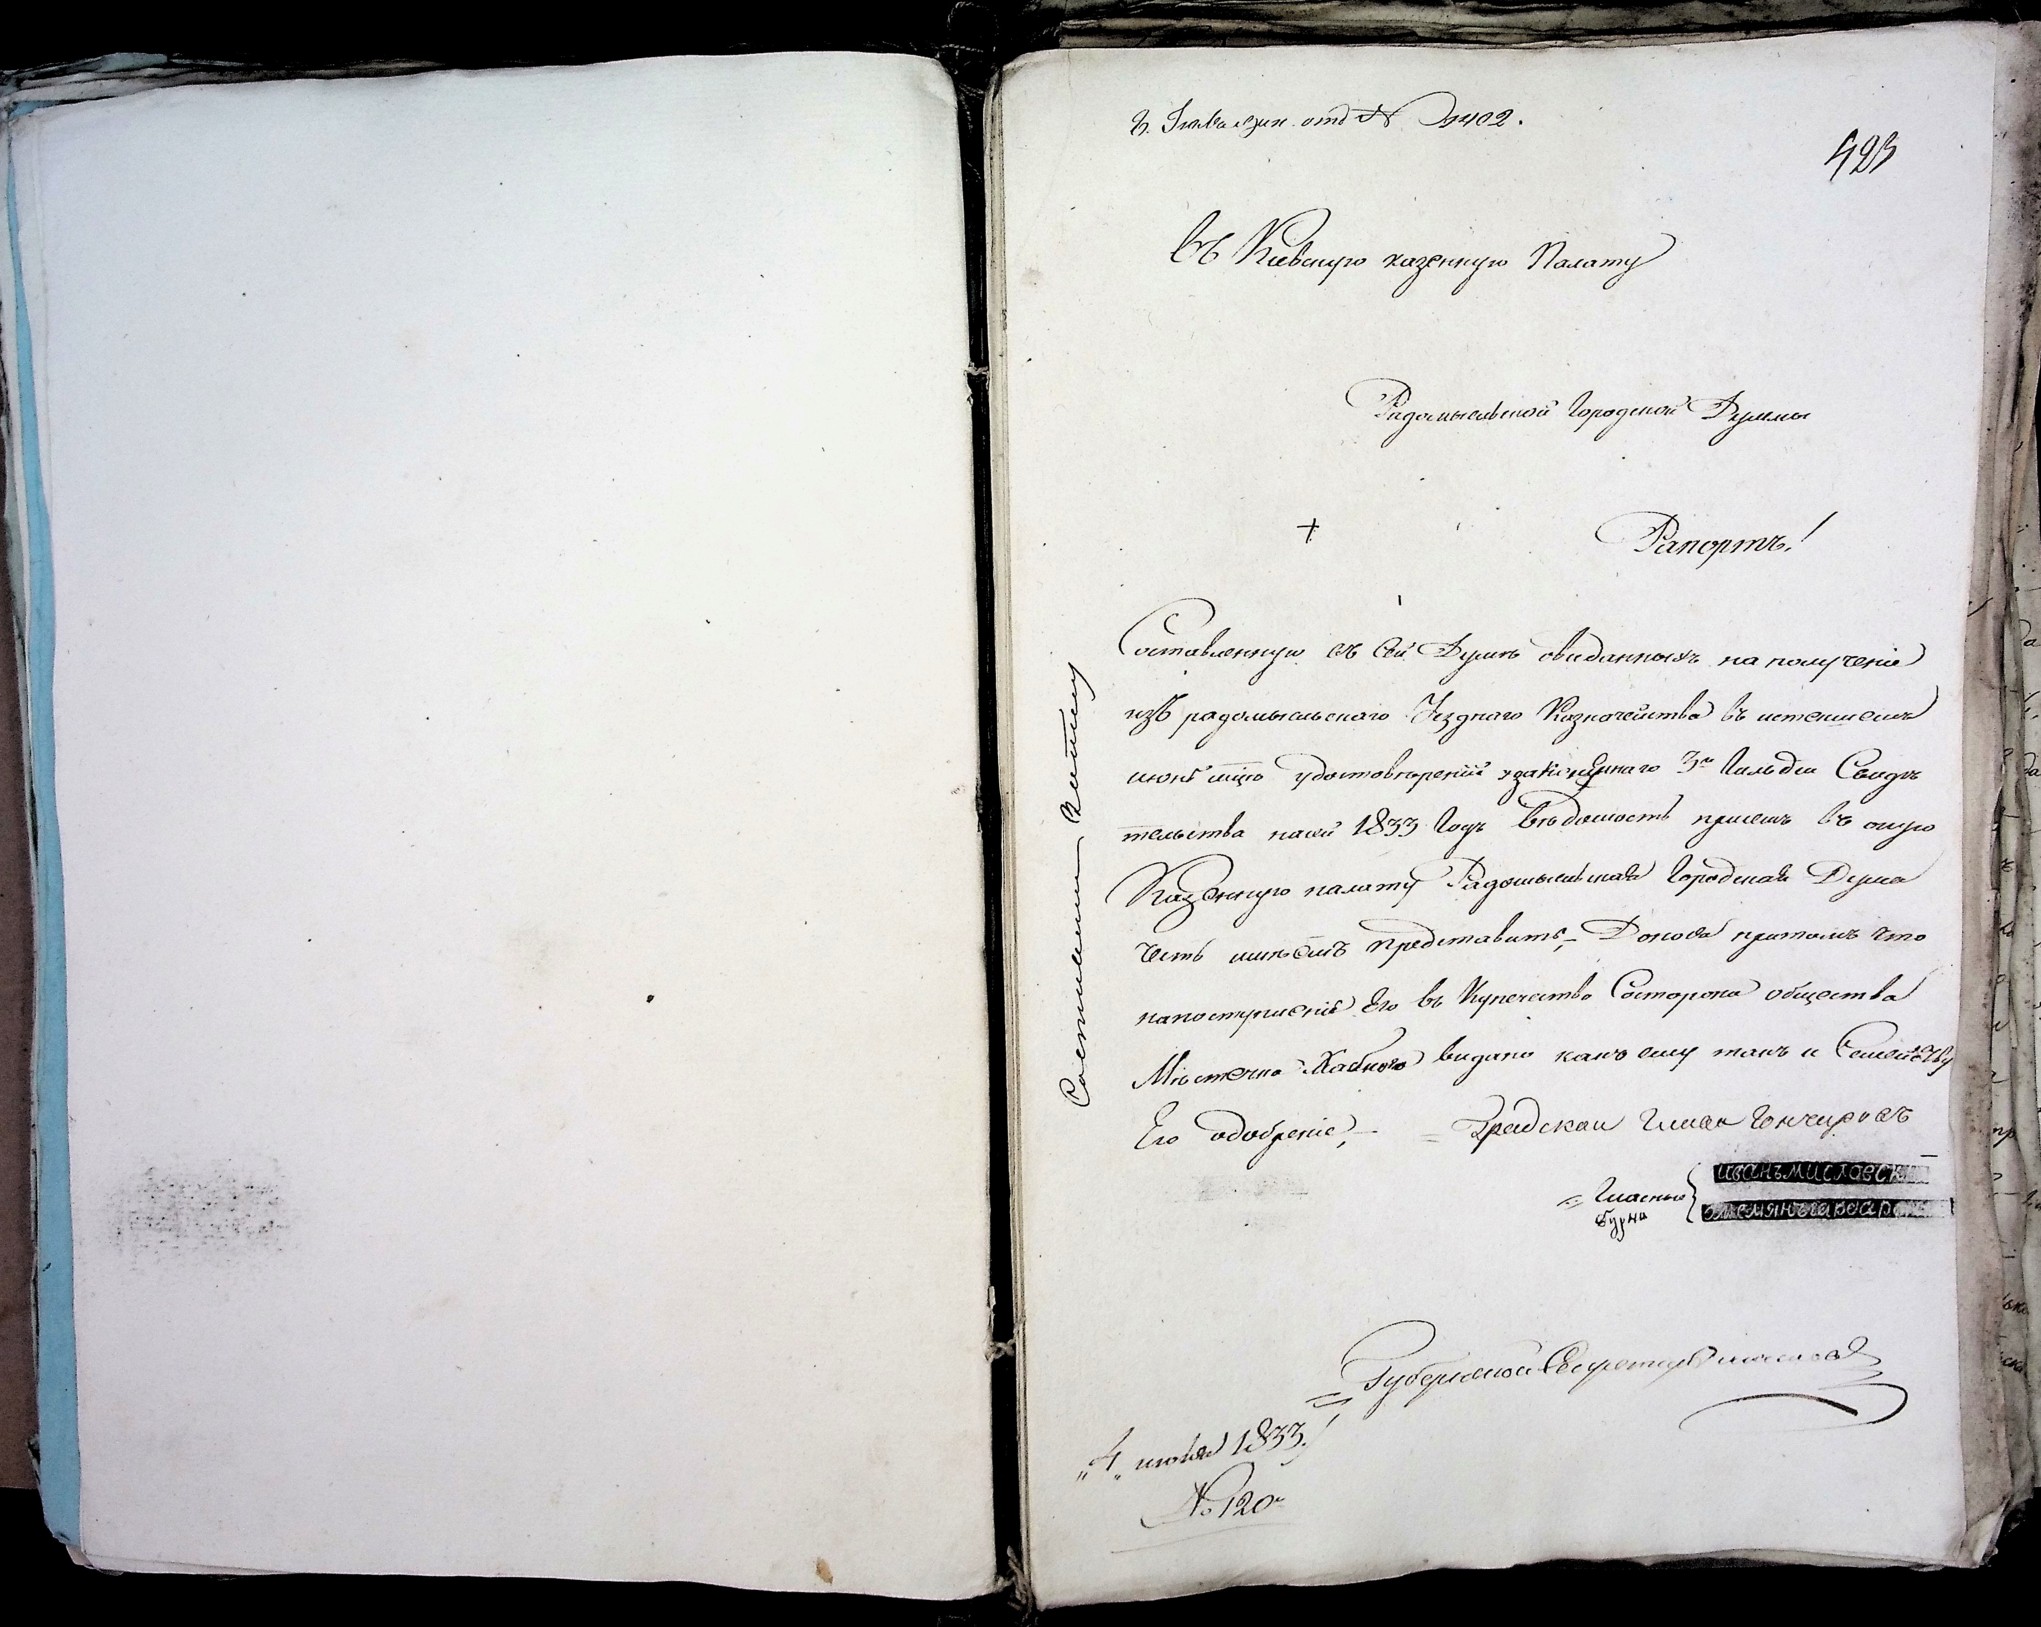 отд № 2402.
423
Въ Киевскую казенную Палату
Радомысльской Городской Думмы
Рапортъ!
Составленную въ сей Думѣ овиданныхъ на получение
изъ радомысльскаго Уезднаго Казначейства въ истекшемъ
июнѣ мцѣ удостоверений 3й Гильдии Свидѣ
тельства насей 1833 Годъ Вѣдомость присемъ въ оную
Казенную палату Радомысльская Городская Дума
честь имѣетъ представить, Донося притомъ что
напоступление Его въ Купечество Состороны общества
Мѣстечка Хабного видано какъ ему такъ и Семейству
Его одобрение, — Градской Глава Гончаровъ
Гласные
Думы
иванъмисловски
Губернской Секретарь
"4" июля 1833.!
№ 120